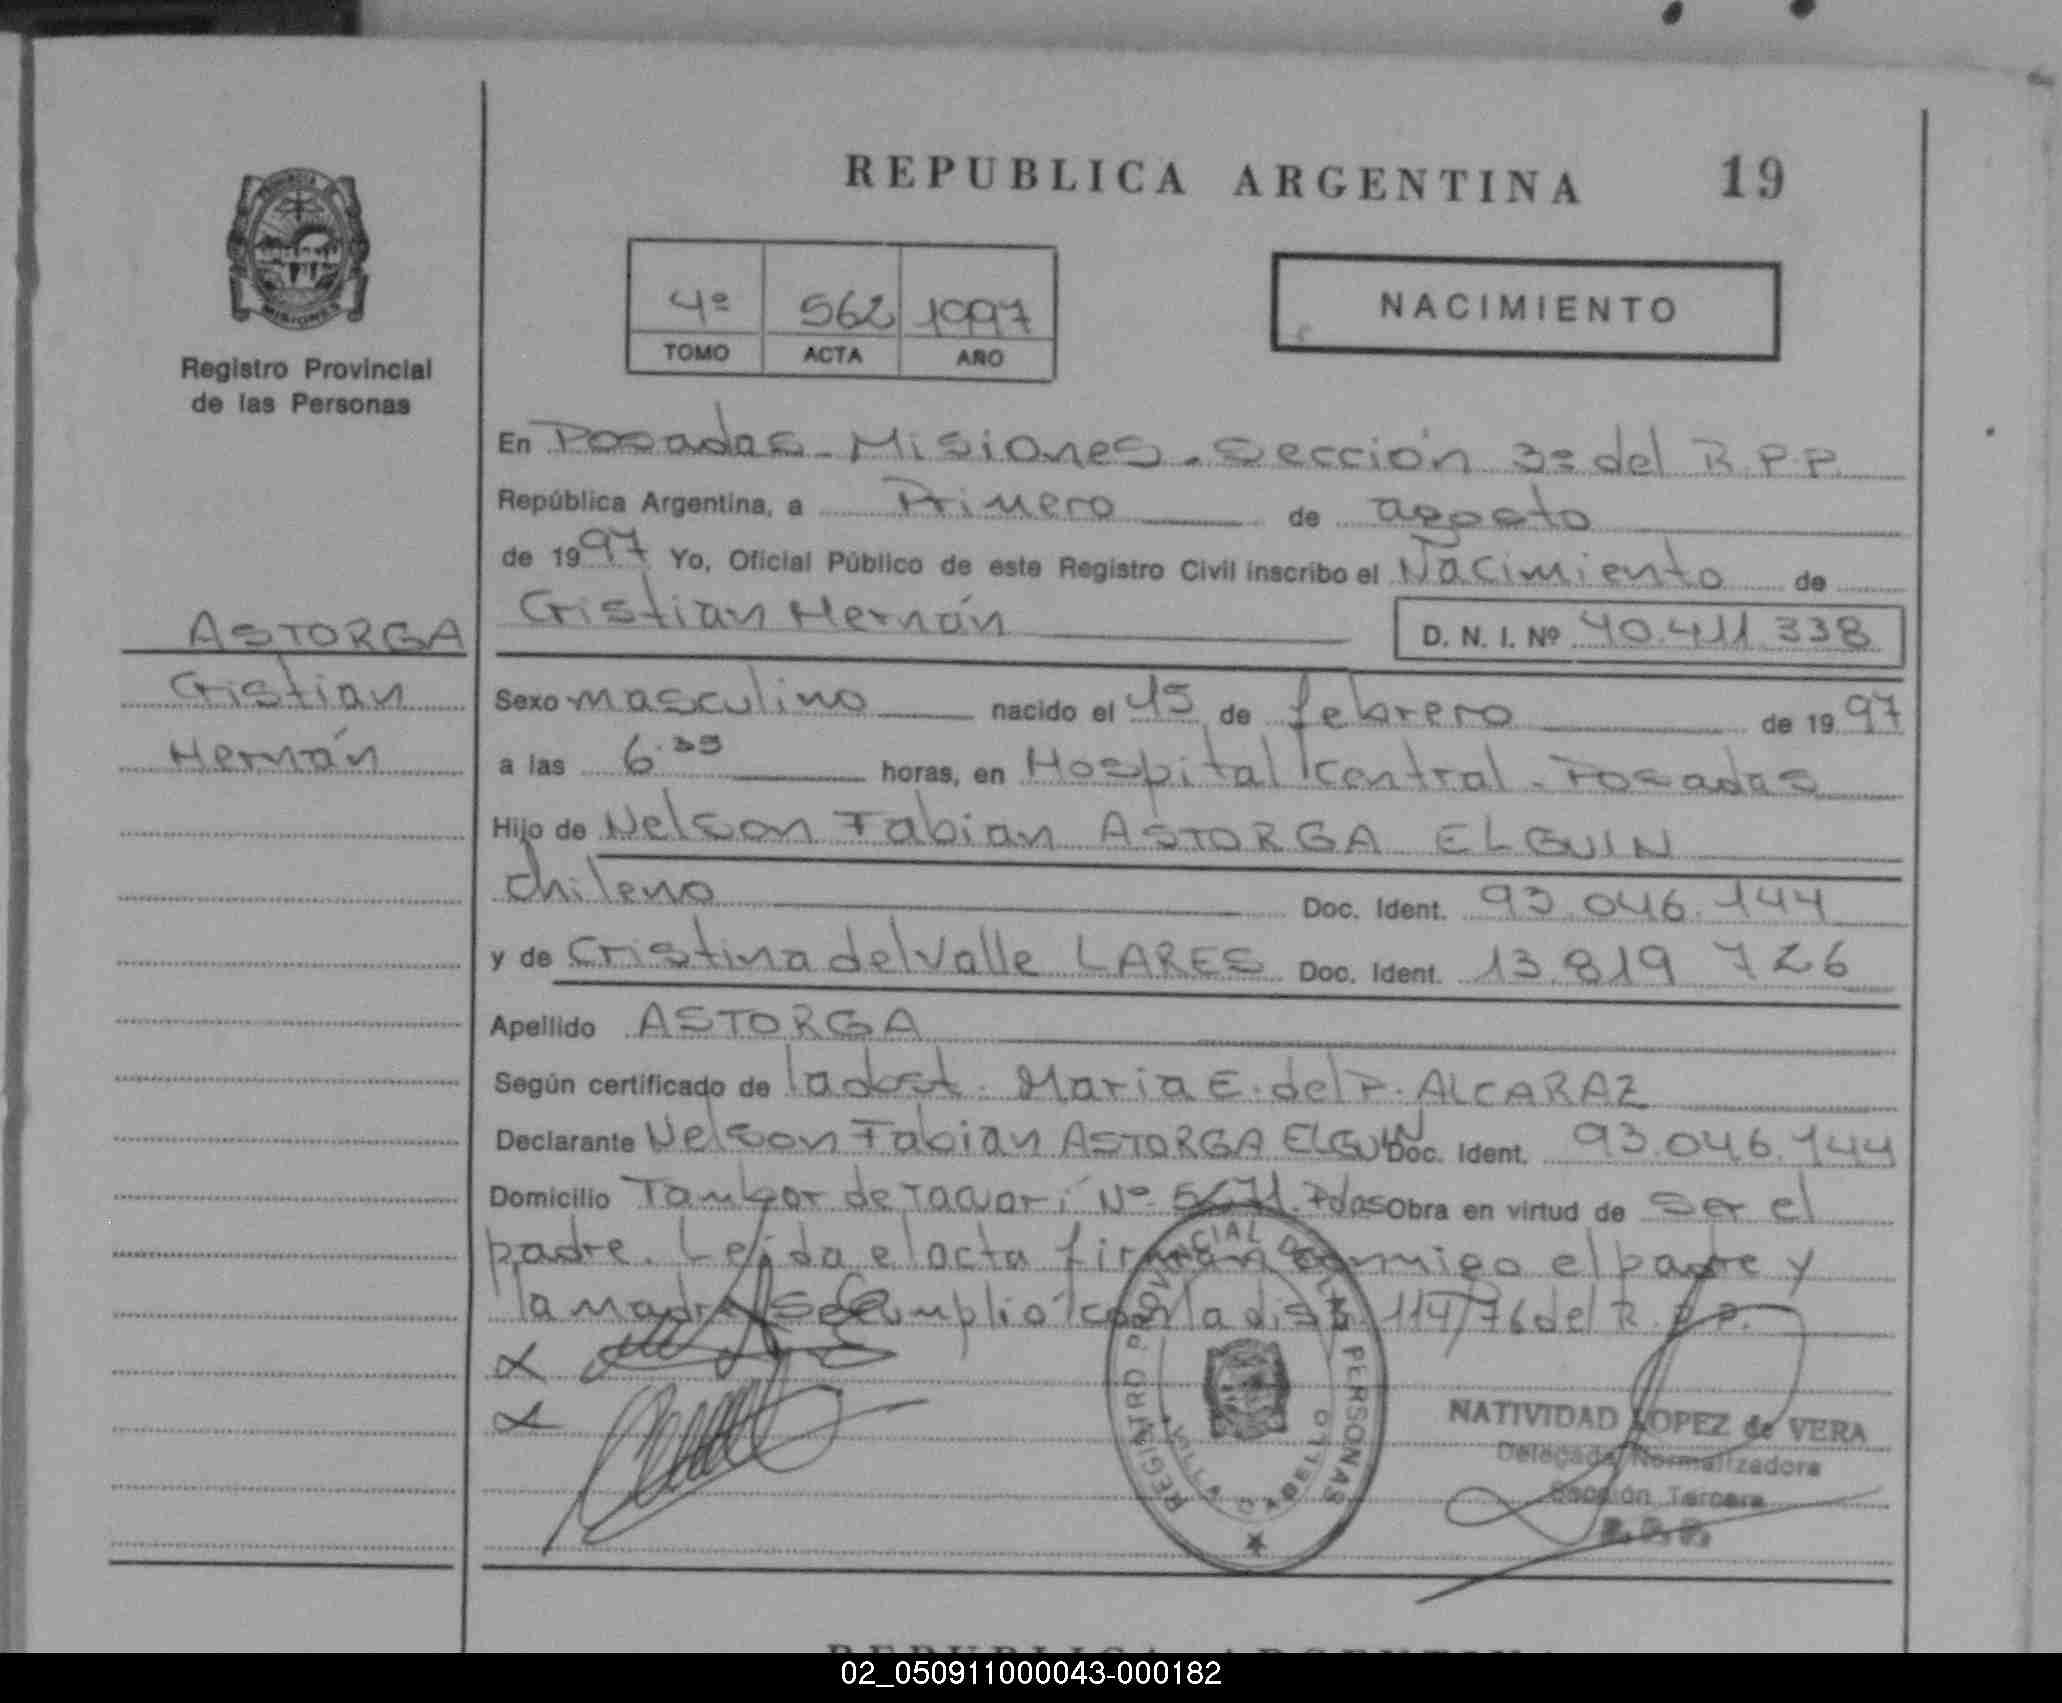 REPUBLICA ARGENTINA 19
PROVINCIA DE
MISIONES
Registro Provincial
de las Personas
4º 562 1997
TOMO ACTA AÑO
NACIMIENTO
En Posadas - Misiones - Sección 3º del R.P.P.
República Argentina, a Primero de agosto
de 1997 Yo, Oficial Público de este Registro Civil inscribo el Nacimiento de
Cristian Hernán D. N. I. Nº 40.411.338
ASTORGA
Cristian
Hernán
Sexo masculino nacido el 15 de febrero de 1997
a las 6.35 horas, en Hospital Central - Posadas
Hijo de Nelson Fabian ASTORGA ELGUIN
chileno Doc. Ident. 93.046.144
y de Cristina del Valle LARES Doc. Ident. 13.819.726
Apellido ASTORGA
Según certificado de la obst. Maria E. del P. ALCARAZ
Declarante Nelson Fabian ASTORGA ELGUIN Doc. Ident. 93.046.144
Domicilio Tambor de Tacuarí Nº Pdas Obra en virtud de ser el
padre. Leida el acta firman conmigo el padre y
la madre se cumplió con la disp. 114/76 del R.P.P.
REGISTRO PROVINCIAL DE LAS PERSONAS
VILLA CABELLO
NATIVIDAD LOPEZ de VERA
Delegada Normalizadora
Sección Tercera
R.P.P.
REPUBLICA ARGENTINA
02_050911000043-000182